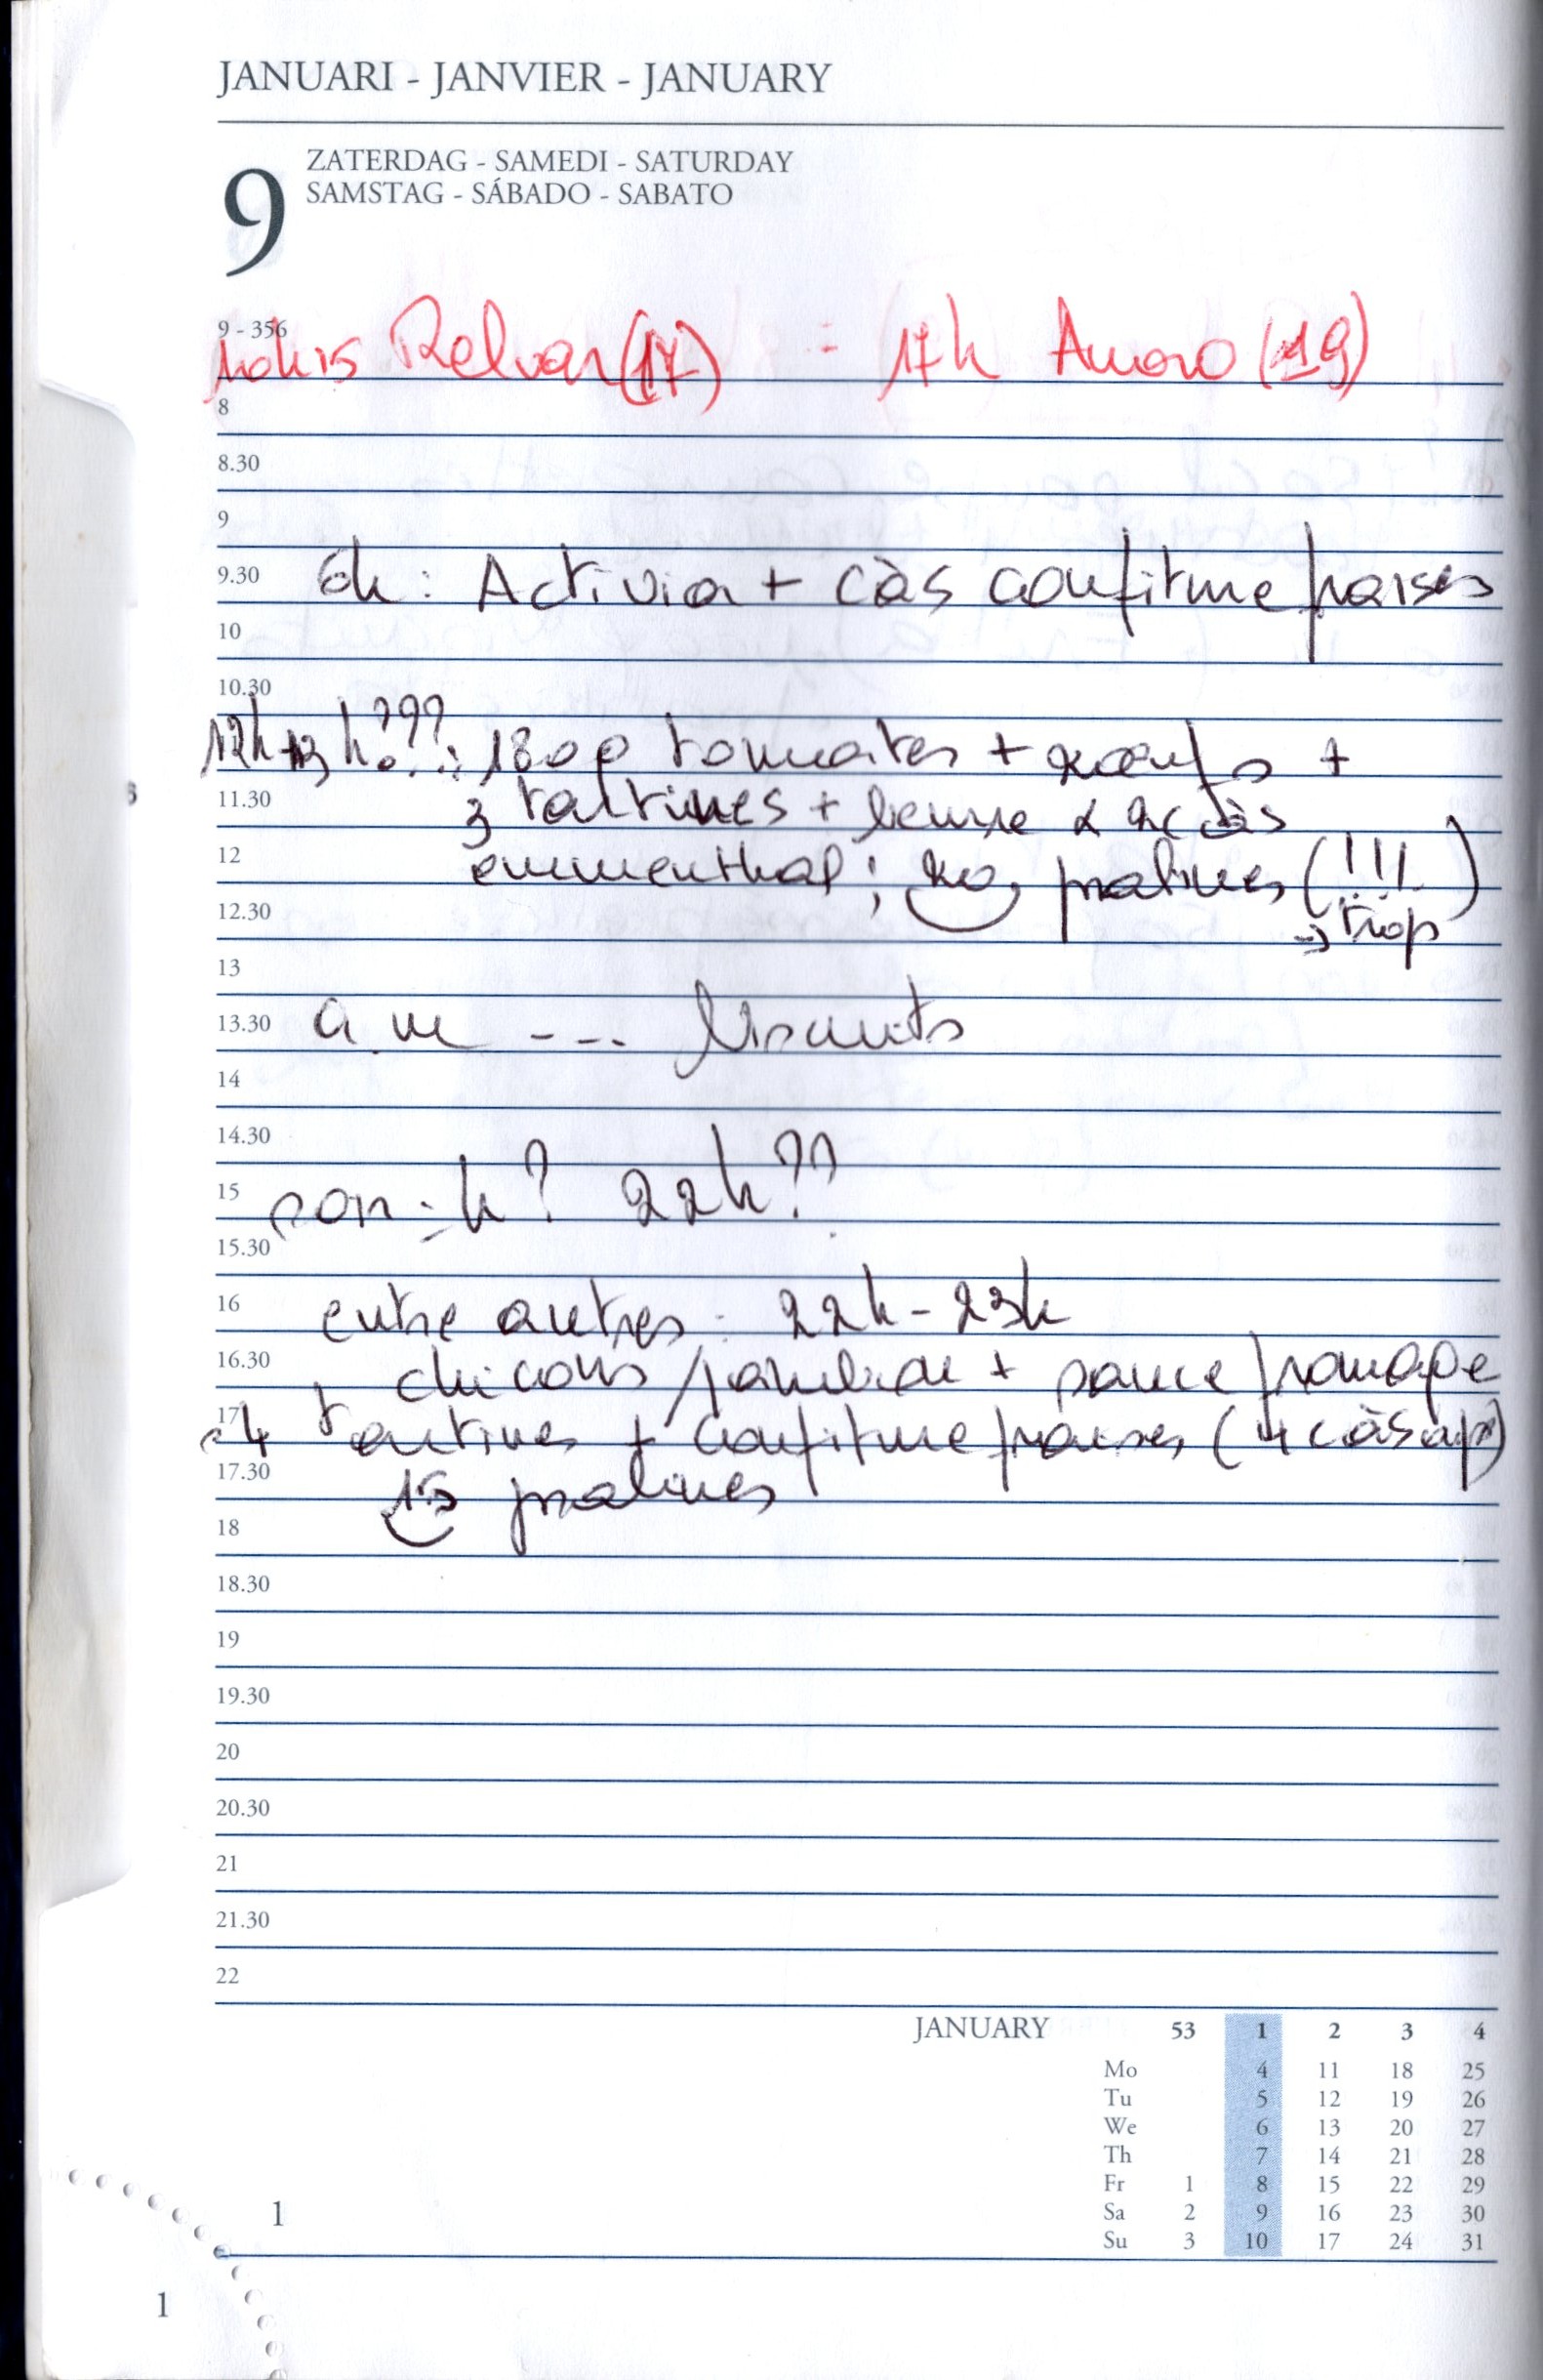 JANUARI - JANVIER - JANUARY
9
ZATERDAG - SAMEDI - SATURDAY
SAMSTAG - SÁBADO - SABATO
9 - 356
(17) = 17h (19)
8
8.30
9
9.30 : Activia + càs confiture fraises
10
10.30
12h-13h???: 180g tomates + 2 œufs +
11.30 3 tartines + beurre & 2 càs
12 emmenthal ; 20 pralines (!!!)
12.30 → trop
13
13.30 a.m --- biscuits
14
14.30
15 h? 22h??
15.30
16 entre autres : 22h - 23h
16.30 chicons / jambon + sauce fromage
17 4 tartines + confiture fraises (4 càs)
17.30 15 pralines
18
18.30
19
19.30
20
20.30
21
21.30
22
JANUARY 53 1 2 3 4
Mo 4 11 18 25
Tu 5 12 19 26
We 6 13 20 27
Th 7 14 21 28
Fr 1 8 15 22 29
Sa 2 9 16 23 30
Su 3 10 17 24 31
1
1